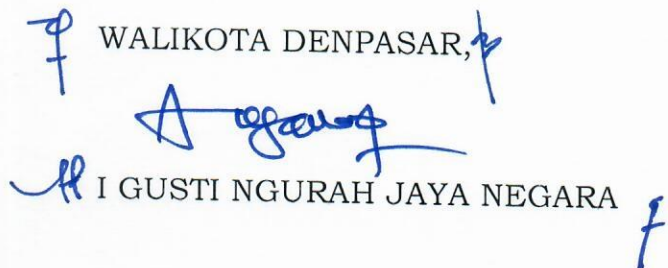 WALIKOTA DENPASAR,
I GUSTI NGURAH JAYA NEGARA